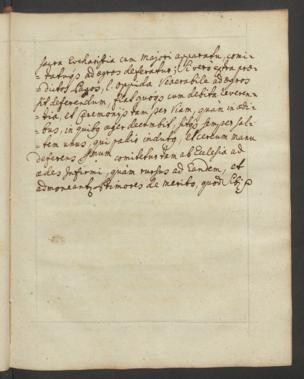 sacra Eucharistia cum majori apparatu, comi-
-tatuq; ad ægros deferatur; Ut vero extra præ-
-dictos Pagos, l. oppida Venerabile ad ægros
sit deferendum, fiat quoq; cum debita Reveren-
-tia, et Cæremonijs tam per Viam, quàm in ædi-
-bus, in quibus æger decumbit, sitq; semper sal-
-tem unus, qui palis indutus, et cereum manu
deferens Ssmum comitetur tam ab Ecclesia ad
ædes Infirmi, quàm rursus ad Eandem, et
admoneantur timores de merito, quod sibi p